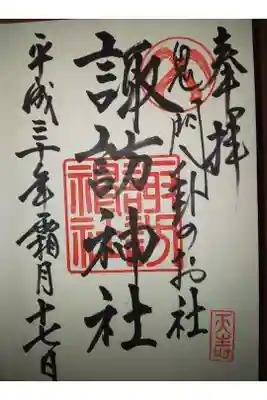 奉拝
鬼門のお社
諏訪神社
平成三十年霜月十七日
諏訪神社